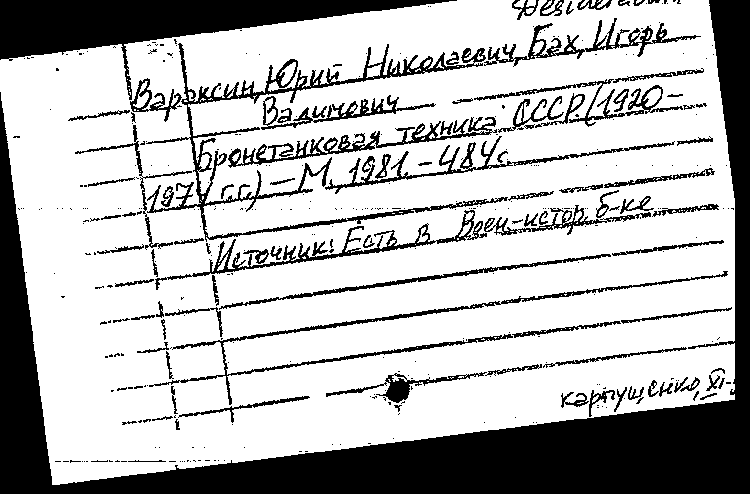 Desiderata
Вараксин, Юрий Николаевич, Бах, Игорь
Вадимович
Бронетанковая техника СССР. (1920-
1974 г.г.) — М., 1981. - 484 с
Источник: Есть в Воен-истор. б-ке
Карпущенко, XI-